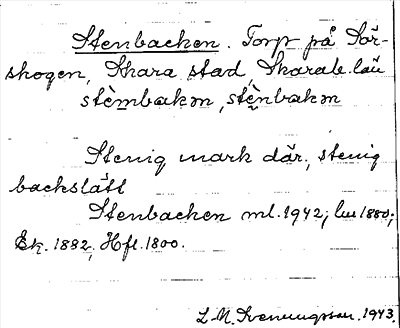 Stenbacken. Torp på Sör-
skogen, Skara stad, Skarab. län
stèmbakən, stènbakən
Stenig mark där, stenig
backslätt
Stenbacken ml. 1942; lm 1880;
Ek. 1882, Hfl. 1800.
L-N. Svenungsson. 1943.